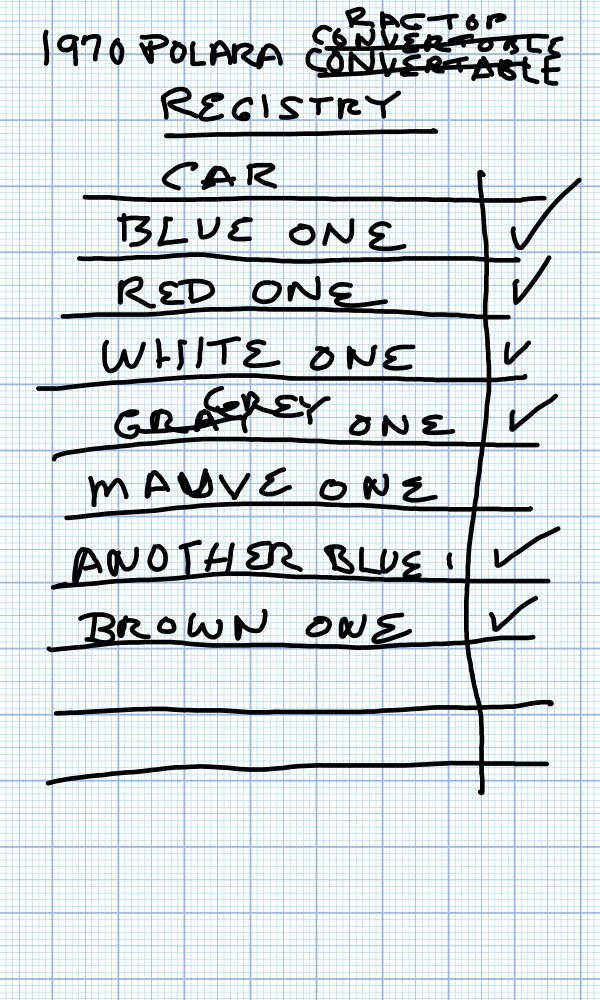 RAGTOP
1970 POLARA CONVERTOBLE
CONVERTABLE
REGISTRY
CAR
BLUE ONE ✓
RED ONE ✓
WHITE ONE ✓
GREY
GRAY ONE ✓
MAUVE ONE
ANOTHER BLUE 1 ✓
BROWN ONE ✓